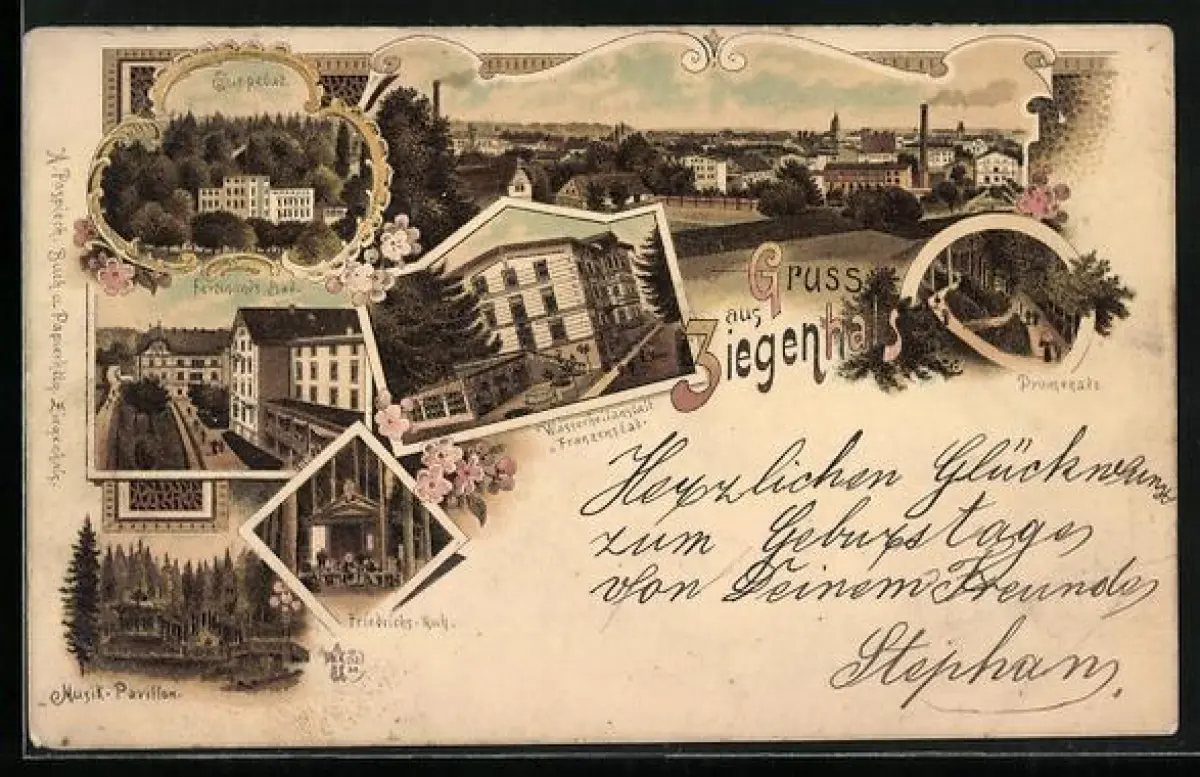 Gruss
aus
Ziegenhals
Ferdinands-Bad.
Wasserheilanstalt
Franzensbad.
Promenade
Friedrichs-Ruh.
Musik-Pavillon.
A. Pospiech, Buch u. Papierhdlg. Ziegenhals.
Herzlichen Glückwunsch
zum Geburtstage
von Deinem Freunde
Stephan.